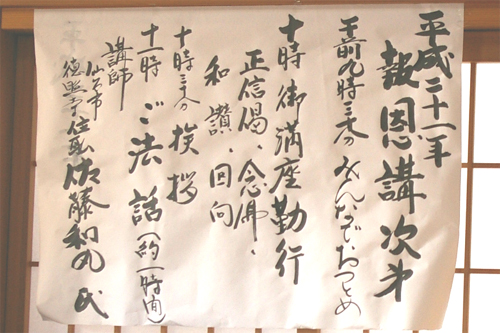 平成二十一年
報恩講次第
午前九時三十分 みんなでおつとめ
十時 御満座勤行
正信偈、念佛、
和讃、回向
十時三十分 挨拶
十一時 ご法話(約一時間)
講師
仙台市
徳照寺 住職 佐藤和丸氏